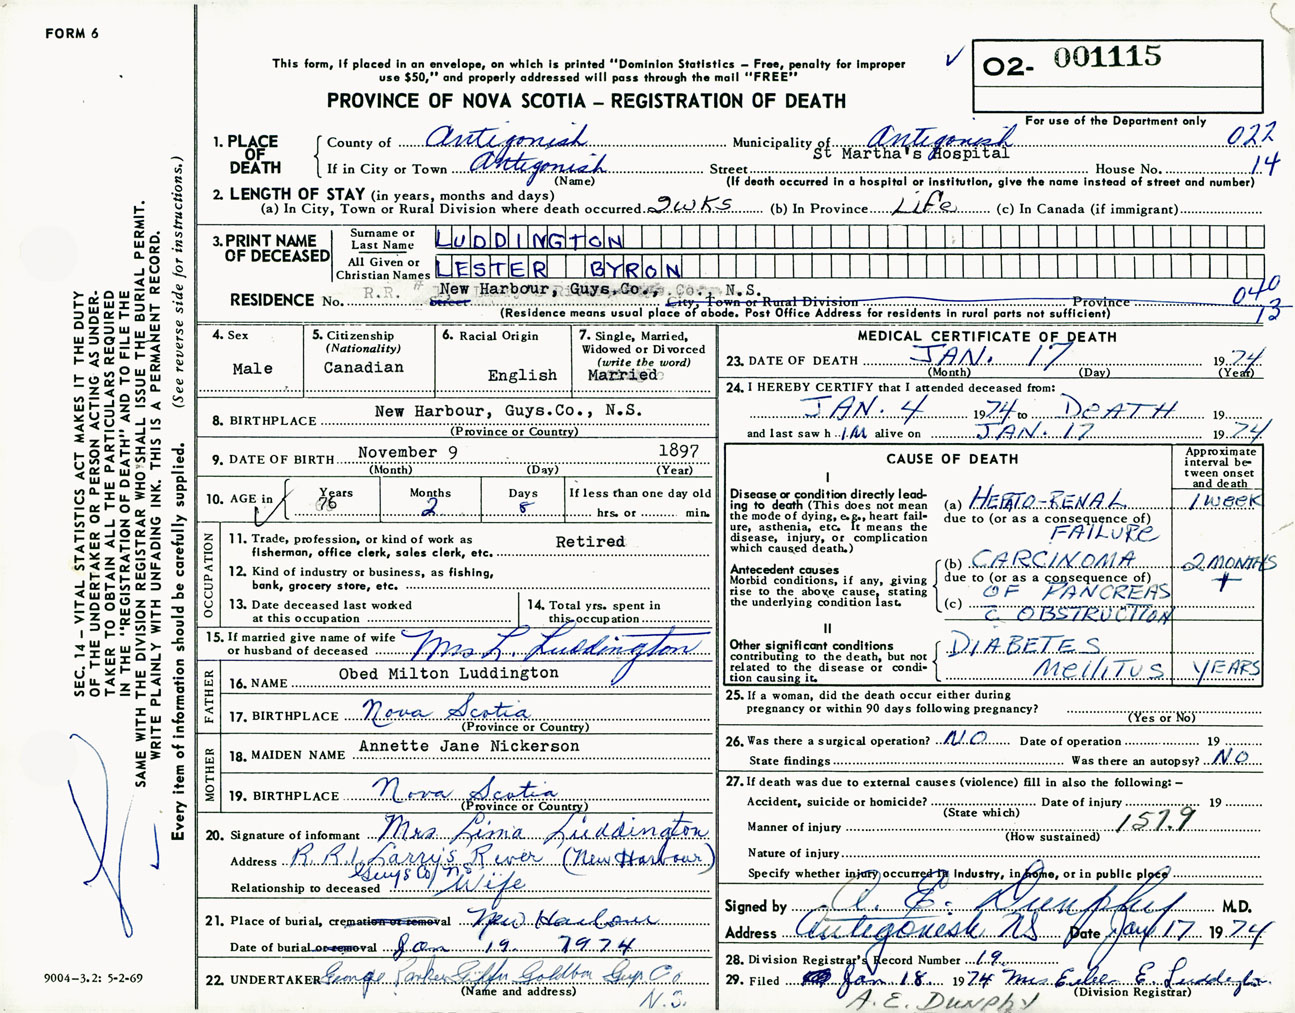 FORM 6
SEC. 14 – VITAL STATISTICS ACT MAKES IT THE DUTY
OF THE UNDERTAKER OR PERSON ACTING AS UNDER-
TAKER TO OBTAIN ALL THE PARTICULARS REQUIRED
IN THE "REGISTRATION OF DEATH" AND TO FILE THE
SAME WITH THE DIVISION REGISTRAR WHO SHALL ISSUE THE BURIAL PERMIT.
WRITE PLAINLY WITH UNFADING INK. THIS IS A PERMANENT RECORD.
Every item of information should be carefully supplied. (See reverse side for instructions.)
9004–3.2: 5-2-69
This form, if placed in an envelope, on which is printed "Dominion Statistics – Free, penalty for improper
use $50," and properly addressed will pass through the mail "FREE"
PROVINCE OF NOVA SCOTIA – REGISTRATION OF DEATH
02- 001115
For use of the Department only
1. PLACE OF DEATH
County of Antigonish Municipality of Antigonish 022
St Martha's Hospital
If in City or Town Antigonish Street House No. 14
(Name) (If death occurred in a hospital or institution, give the name instead of street and number)
2. LENGTH OF STAY (in years, months and days)
(a) In City, Town or Rural Division where death occurred 2 wks (b) In Province Life (c) In Canada (if immigrant)
3. PRINT NAME OF DECEASED
Surname or Last Name LUDDINGTON
All Given or Christian Names LESTER BYRON
New Harbour, Guys.Co., N.S. 040
RESIDENCE No. R.R. # Street City, Town or Rural Division Province 13
(Residence means usual place of abode. Post Office Address for residents in rural parts not sufficient)
4. Sex
Male
5. Citizenship
(Nationality)
Canadian
6. Racial Origin
English
7. Single, Married,
Widowed or Divorced
(write the word)
Married
8. BIRTHPLACE New Harbour, Guys.Co., N.S.
(Province or Country)
9. DATE OF BIRTH November 9 1897
(Month) (Day) (Year)
10. AGE in Years 76 Months 2 Days 8 If less than one day old
hrs. or min.
OCCUPATION
11. Trade, profession, or kind of work as
fisherman, office clerk, sales clerk, etc. Retired
12. Kind of industry or business, as fishing,
bank, grocery store, etc.
13. Date deceased last worked
at this occupation
14. Total yrs. spent in
this occupation
15. If married give name of wife
or husband of deceased Mrs L. Luddington
FATHER
16. NAME Obed Milton Luddington
17. BIRTHPLACE Nova Scotia
(Province or Country)
MOTHER
18. MAIDEN NAME Annette Jane Nickerson
19. BIRTHPLACE Nova Scotia
(Province or Country)
20. Signature of informant Mrs Lima Luddington
Address R.R.1, Larry's River (New Harbour)
Guys Co/ N.S.
Relationship to deceased Wife
21. Place of burial, cremation or removal New Harbour
Date of burial or removal Jan 19. 1974
22. UNDERTAKER George Parker Giffin Goldboro Guys. Co.
(Name and address) N.S.
MEDICAL CERTIFICATE OF DEATH
23. DATE OF DEATH JAN. 17 1974
(Month) (Day) (Year)
24. I HEREBY CERTIFY that I attended deceased from:
JAN. 4 1974 to DEATH 19
and last saw h IM alive on JAN. 17 1974
CAUSE OF DEATH
Approximate
interval be-
tween onset
and death
I
Disease or condition directly lead-
ing to death (This does not mean
the mode of dying, e.g., heart fail-
ure, asthenia, etc. It means the
disease, injury, or complication
which caused death.)
(a) HEPATO-RENAL 1 WEEK
due to (or as a consequence of)
FAILURE
Antecedent causes
Morbid conditions, if any, giving
rise to the above cause, stating
the underlying condition last.
(b) CARCINOMA 2 MONTHS +
due to (or as a consequence of)
OF PANCREAS
(c) C OBSTRUCTION
II
Other significant conditions
contributing to the death, but not
related to the disease or condi-
tion causing it.
DIABETES
MELLITUS YEARS
25. If a woman, did the death occur either during
pregnancy or within 90 days following pregnancy?
(Yes or No)
26. Was there a surgical operation? NO Date of operation 19
State findings Was there an autopsy? NO
27. If death was due to external causes (violence) fill in also the following: –
Accident, suicide or homicide? Date of injury 19
(State which)
Manner of injury 157.9
(How sustained)
Nature of injury
Specify whether injury occurred in industry, in home, or in public place
Signed by A. E. Dunphy M.D.
Address Antigonish NS Date Jan 17 1974
28. Division Registrar's Record Number 19
29. Filed Jan 18. 1974 Mrs E. Luddington
(Division Registrar)
A. E. DUNPHY